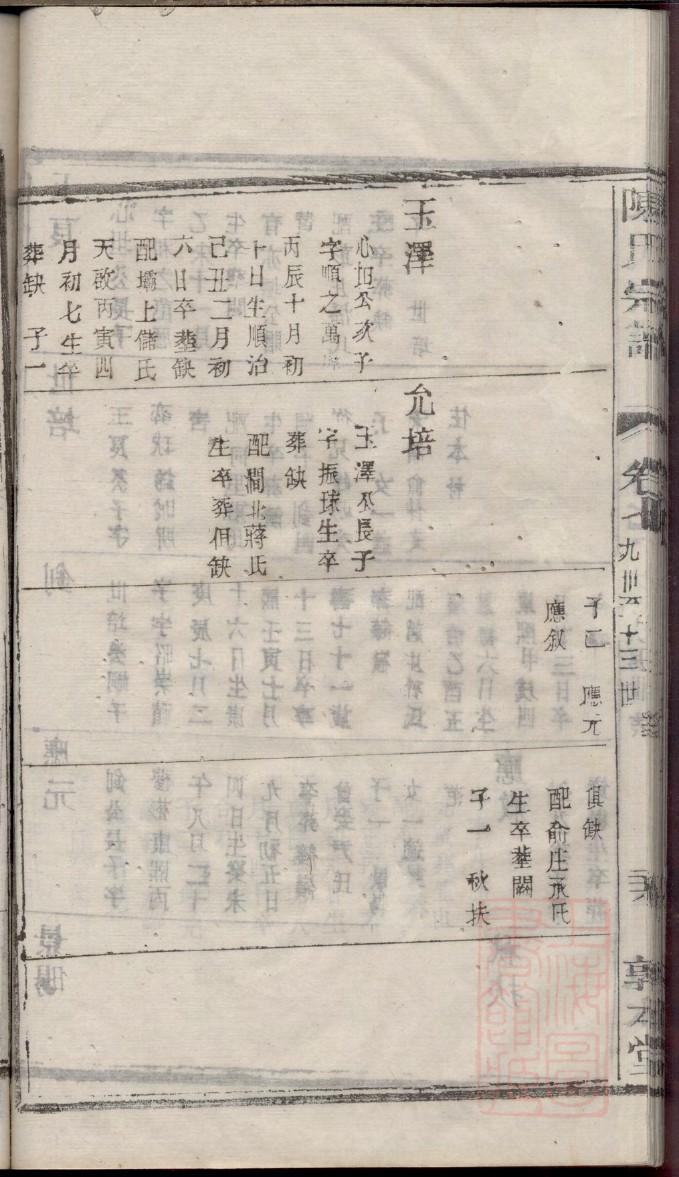 陳氏宗譜
卷七
九世至十三世
敦本堂
玉澤
心坦公次子
字順之萬
丙辰十月初
十日生順治
己丑二月初
六日卒塟缺
配壩上儲氏
天啟丙寅四
月初七生卒
葬缺 子一
允培
玉澤公長子
字振球生卒
葬缺
配澗北蔣氏
生卒葬俱缺
子二 應元
應叙
俱缺
配俞庄承氏
生卒塟闕
子一 秋扶